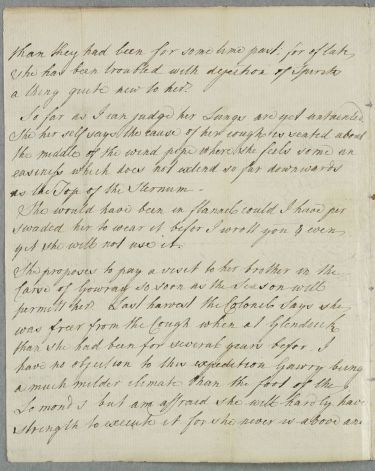 than they had been for some time past. for of late
she has been troubled with dejection of Spirits
a thing quite new to her.
So far as I can judge her Lungs are yet untainted
She her self says the cause of her cough is seated about
the middle of the wind pipe where she feels some un
easiness which does not extend so far downwards
as the Top of the Sternum -
She would have been in flannel could I have per
swaded her to wear it befor I wrote you & even
yet she will not use it.
She proposes to pay a visit to her brother in the
Carse of Gowray so soon as the Season will
permitt her. Last harvest the Colonel says she
was freer from the Cough when at Glendeick
than she had been for several years befor. I
have no objection to this expedition Gawry being
a much milder climate than the foot of the
Lomonds but am affraid she will hardly have
strength to execute it for she never is above an